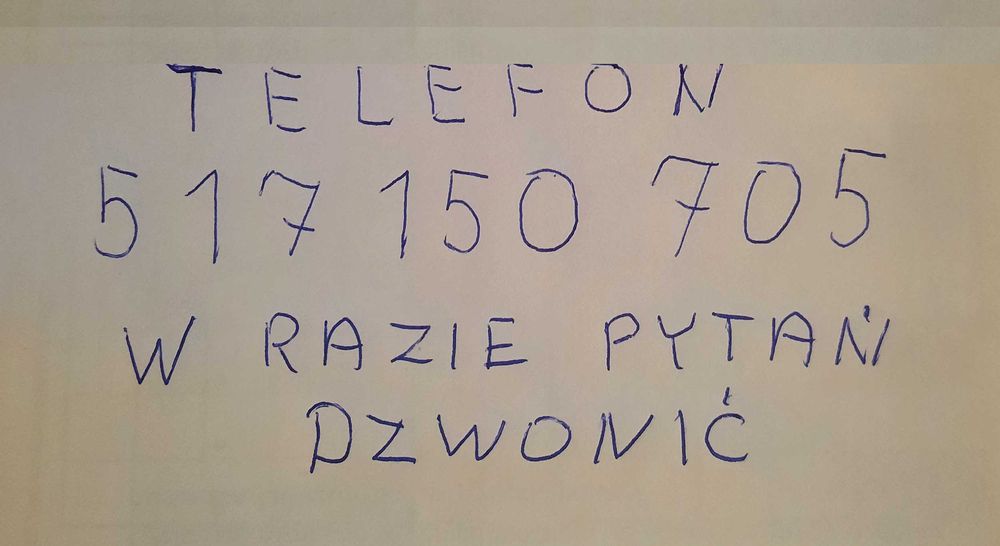 TELEFON
517 150 705
W RAZIE PYTAŃ
DZWONIĆ